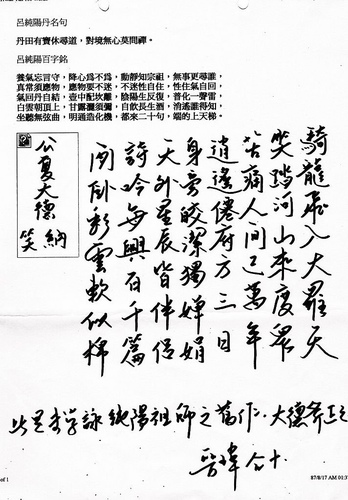 呂純陽丹名句
丹田有寶休尋道，對境無心莫問禪。
呂純陽百字銘
養氣忘言守，降心為不為，動靜知宗祖，無事更尋誰，
真常須應物，應物要不迷，不迷性自住，性住氣自回，
氣回丹自結，壺中配坎離，陰陽生反復，普化一聲雷，
白雲朝頂上，甘露灑須彌，自飲長生酒，逍遙誰得知，
坐聽無弦曲，明通造化機，都來二十句，端的上天梯。
騎龍飛入大羅天
笑踏河山來度眾
苦痛人間已萬年
逍遙僊府方三日
身旁皎潔獨嬋娟
大外星辰皆伴侶
詩吟每興百千篇
閑卧彩雲軟似棉
公夏大德
笑納
此是李學詠純陽祖師之舊作，大德斧正
晉瑋合十
of 1
87/8/17 AM 01:37